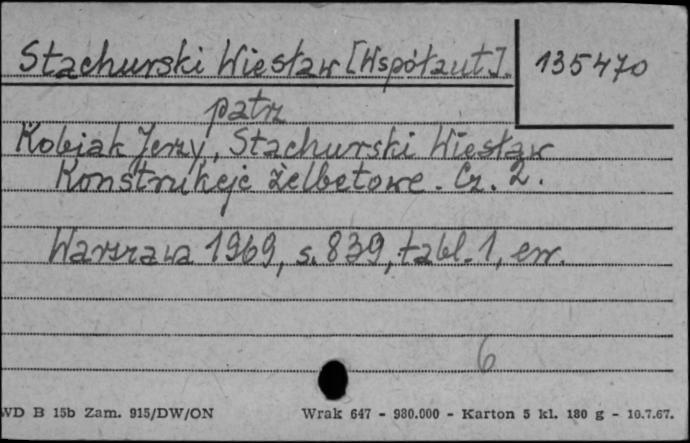 Stachurski Wiesław [Współaut.].
135470
patrz
Kobiak Jerzy, Stachurski Wiesław
Konstrukcje żelbetowe. Cz. 2.
Warszawa 1969, s. 839, tabl. 1, err.
6
WD B 15b Zam. 915/DW/ON Wrak 647 - 980.000 - Karton 5 kl. 180 g - 10.7.67.